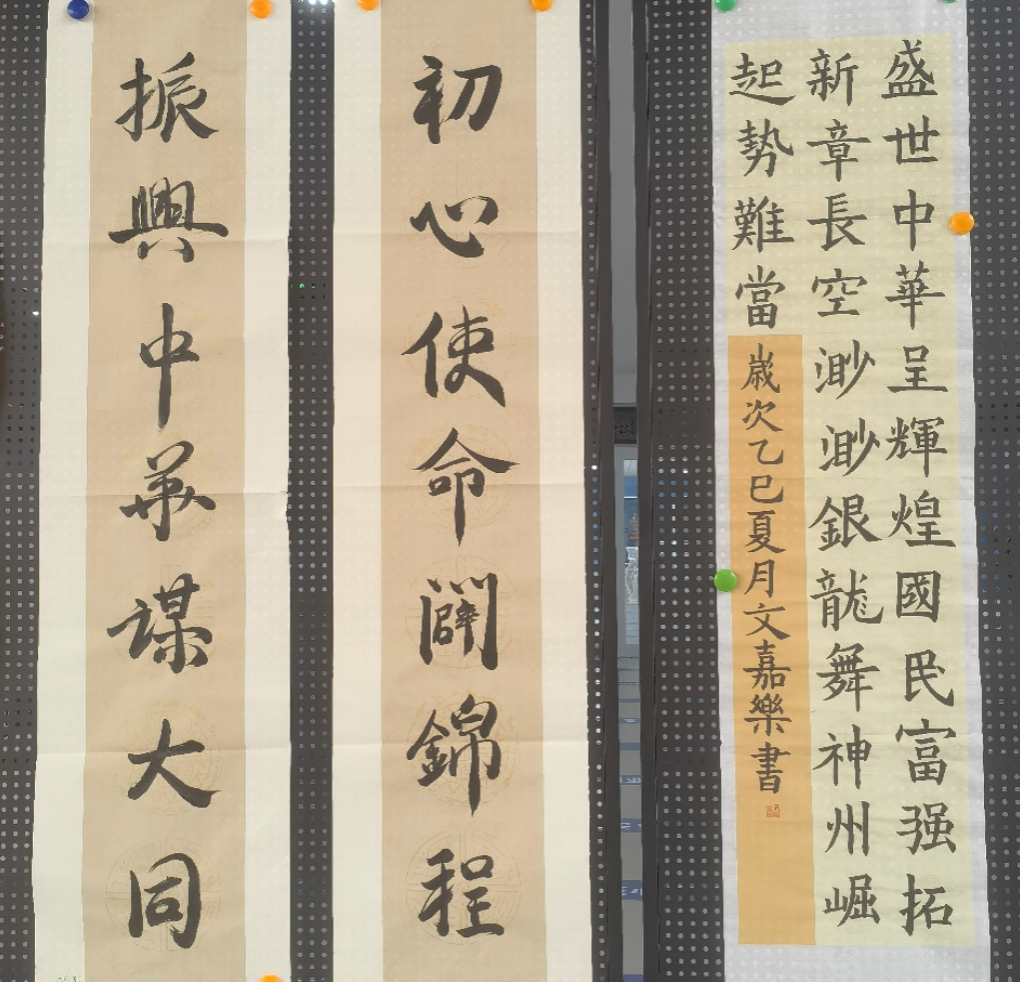 盛世中華呈輝煌國民富强拓
新章長空渺渺銀龍舞神州崛
起勢難當
歲次乙巳夏月文嘉樂書
初心使命闢錦程
振興中華謀大同